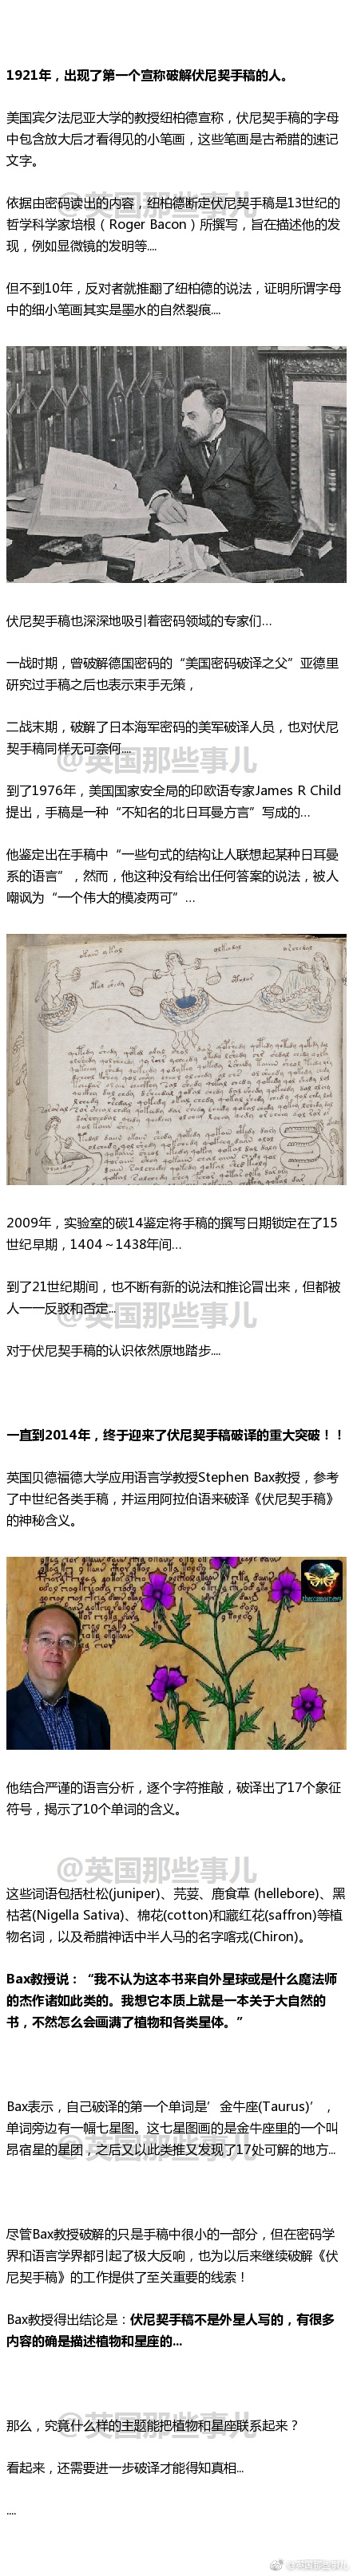 1921年，出现了第一个宣称破解伏尼契手稿的人。
美国宾夕法尼亚大学的教授纽柏德宣称，伏尼契手稿的字母
中包含放大后才看得见的小笔画，这些笔画是古希腊的速记
文字。
@英国那些事儿
依据由密码读出的内容，纽柏德断定伏尼契手稿是13世纪的
哲学科学家培根（Roger Bacon）所撰写，旨在描述他的发
现，例如显微镜的发明等....
但不到10年，反对者就推翻了纽柏德的说法，证明所谓字母
中的细小笔画其实是墨水的自然裂痕....
伏尼契手稿也深深地吸引着密码领域的专家们...
一战时期，曾破解德国密码的“美国密码破译之父”亚德里
研究过手稿之后也表示束手无策，
二战末期，破解了日本海军密码的美军破译人员，也对伏尼
契手稿同样无可奈何....
@英国那些事儿
到了1976年，美国国家安全局的印欧语专家James R Child
提出，手稿是一种“不知名的北日耳曼方言”写成的...
他鉴定出在手稿中“一些句式的结构让人联想起某种日耳曼
系的语言”，然而，他这种没有给出任何答案的说法，被人
嘲讽为“一个伟大的模凌两可”...
2009年，实验室的碳14鉴定将手稿的撰写日期锁定在了15
世纪早期，1404～1438年间...
到了21世纪期间，也不断有新的说法和推论冒出来，但都被
人一一反驳和否定...
@英国那些事儿
对于伏尼契手稿的认识依然原地踏步....
一直到2014年，终于迎来了伏尼契手稿破译的重大突破！！
英国贝德福德大学应用语言学教授Stephen Bax教授，参考
了中世纪各类手稿，并运用阿拉伯语来破译《伏尼契手稿》
的神秘含义。
他结合严谨的语言分析，逐个字符推敲，破译出了17个象征
符号，揭示了10个单词的含义。
@英国那些事儿
这些词语包括杜松(juniper)、芫荽、鹿食草 (hellebore)、黑
枯茗(Nigella Sativa)、棉花(cotton)和藏红花(saffron)等植
物名词，以及希腊神话中半人马的名字喀戎(Chiron)。
Bax教授说：“我不认为这本书来自外星球或是什么魔法师
的杰作诸如此类的。我想它本质上就是一本关于大自然的
书，不然怎么会画满了植物和各类星体。”
Bax表示，自己破译的第一个单词是’金牛座(Taurus)’，
单词旁边有一幅七星图。这七星图画的是金牛座里的一个叫
昴宿星的星团，之后又以此类推又发现了17处可解的地方...
@英国那些事儿
尽管Bax教授破解的只是手稿中很小的一部分，但在密码学
界和语言学界都引起了极大反响，也为以后来继续破解《伏
尼契手稿》的工作提供了至关重要的线索！
Bax教授得出结论是：伏尼契手稿不是外星人写的，有很多
内容的确是描述植物和星座的...
@英国那些事儿
那么，究竟什么样的主题能把植物和星座联系起来？
看起来，还需要进一步破译才能得知真相...
....
@英国那些事儿